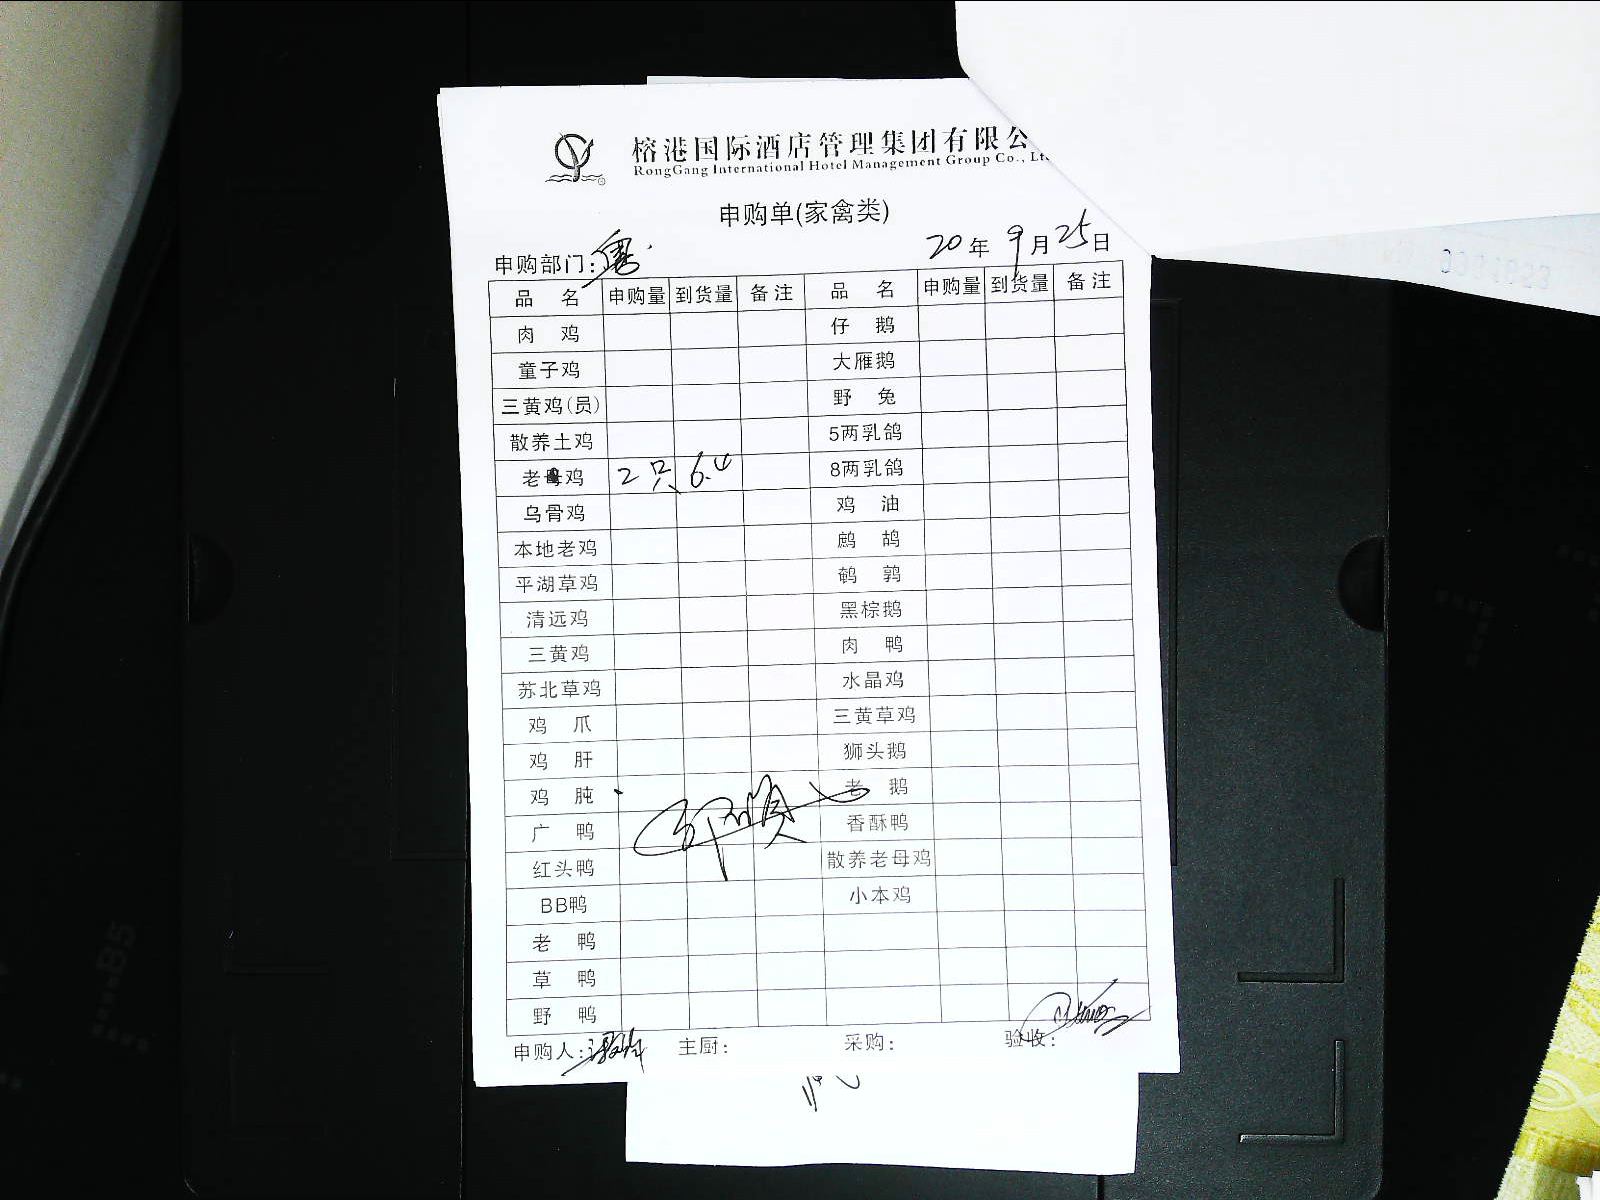 榕港国际酒店管理集团有限公
RongGang International Hotel Management Group Co., Lt
申购单(家禽类)
申购部门: 粤
20年9月25日
品名 申购量 到货量 备注 品名 申购量 到货量 备注
肉鸡 仔鹅
童子鸡 大雁鹅
三黄鸡(员) 野兔
散养土鸡 5两乳鸽
老母鸡 2只 6.4 8两乳鸽
乌骨鸡 鸡油
本地老鸡 鹧鸪
平湖草鸡 鹌鹑
清远鸡 黑棕鹅
三黄鸡 肉鸭
苏北草鸡 水晶鸡
鸡爪 三黄草鸡
鸡肝 狮头鹅
鸡肫 老鹅
广鸭 香酥鸭
红头鸭 散养老母鸡
BB鸭 小本鸡
老鸭
草鸭
野鸭
申购人: 主厨: 采购: 验收: